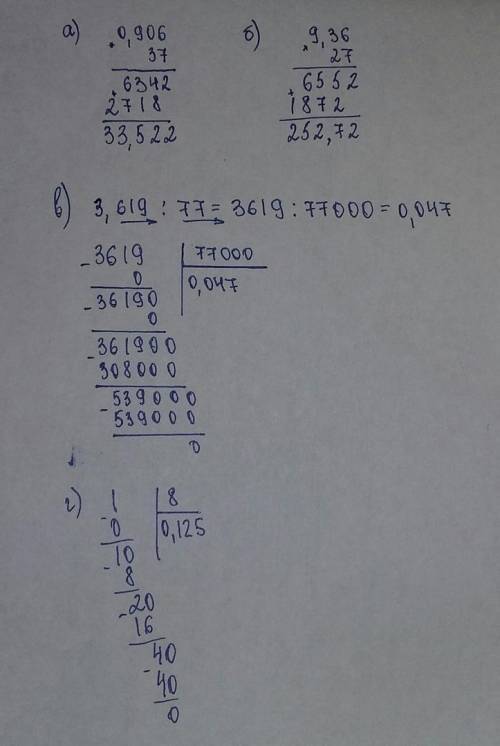 а) 0,906 б) 9,36
× 37 × 27
+ 6342 + 6552
2718 1872
33,522 252,72
в) 3,619 : 77 = 3619 : 77000 = 0,047
- 3619 77000
0 0,047
- 36190
0
- 361900
308000
- 539000
539000
0
г) 1 8
- 0 0,125
10
- 8
- 20
16
40
- 40
0